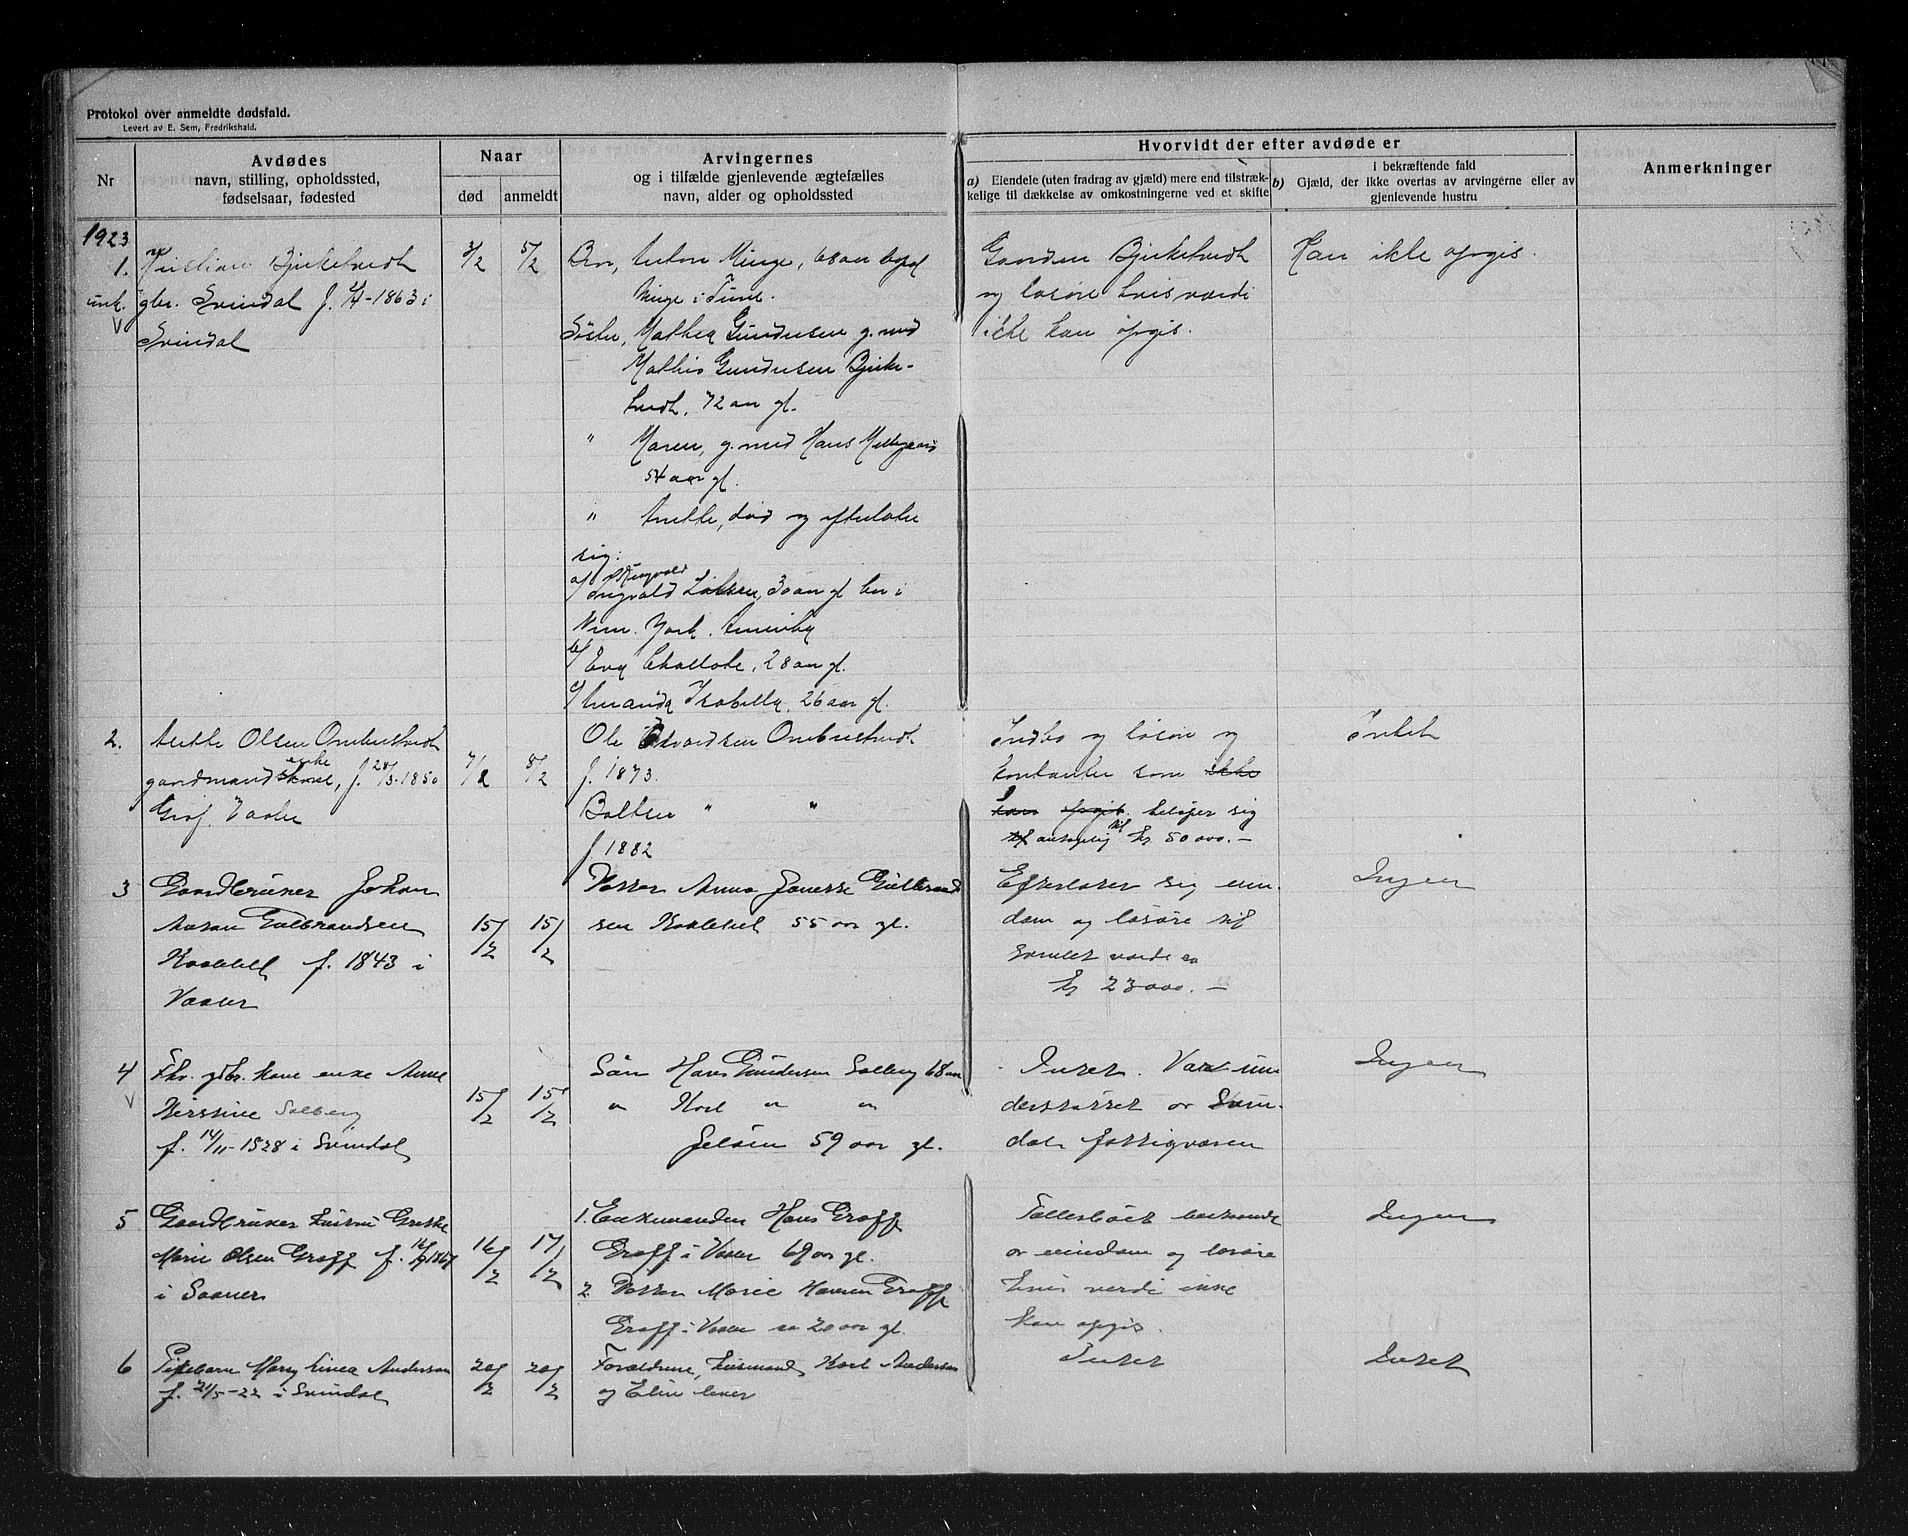 Protokol over anmeldte dødsfald.
Levert av E. Sem, Fredrikshald.
Nr
Avdødes
navn, stilling, opholdssted,
fødselsaar, fødested
Naar
død
anmeldt
Arvingernes
og i tilfælde gjenlevende ægtefælles
navn, alder og opholdssted
Hvorvidt der efter avdøde er
a) Eiendele (uten fradrag av gjæld) mere end tilstræk-
kelige til dækkelse av omkostningerne ved et skifte
i bekræftende fald
b) Gjæld, der ikke overtas av arvingerne eller av
gjenlevende hustru
Anmerkninger
1923
1.
Kristian Bjerketvedt
gbr. Svindal f. 1863 i
Svindal
3/2
5/2
Bror, Anton Minge, 68 aar
Minge i Tune.
Søster, Mathea Gundersen g. med
Mathis Gundersen Bjerke-
tvedt, 72 aar gl.
" Maren, g. med Hans
54 aar gl.
" Anette, død og efterlater
sig:
a/ Ringvold
Ingvald Larsen, 30 aar gl. bor i
New York, Amerika
b/ Eva Charlotte, 28 aar gl.
c/ Amanda Isabella, 26 aar gl.
Gaarden Bjerketvedt
og løsøre hvis værdi
ikke kan opgis.
Kan ikke opgis.
2.
Anette Olsen Ombustvedt
gaardmandskone, enke f. 28/3-1850
Vaaler
7/2
8/2
Ole Edvardsen Ombustvedt
f. 1873.
Boltser " "
f 1882
Indbo og løsøre og
kontanter som ikke
kan opgis. beløper sig
til antagelig kr 50 000.—
Intet
3
Gaardbruker Johan
Anton Gulbrandsen
f. 1843 i
Vaaler
15/2
15/2
Datter Anna Janette Gulbrand
sen 55 aar gl.
Efterlater sig eien-
dom og løsøre til
samlet værdi ca
kr 23 000.—
Ingen
4
Fhv. gdbr. kone enke Anne
Kirstine Solberg
f. 14/11-1828 i Svindal
15/2
15/2
Søn Hans Gundersen Solberg 68 aar
" Karl " "
Jeløen 59 aar gl.
Intet. Var un
derstøttet av Svin-
dal fattigvæsen
Ingen
5
Gaardbruker hustru Grethe
Marie Olsen Graff f. 1867
i Saaner
16/2
17/2
1. Enkemanden Hans Graff
Graff i Vaaler 69 aar gl.
2 Datter Marie Hansen Graff
Graff i Vaaler ca 20 aar gl.
Fællesboet bestaaende
av eiendom og løsøre
hvis verdi ikke
kan opgis.
Ingen
6
Pikebarn Mary Linea Anderson
f. 21/5-22 i Svindal
20/2
20/2
Forældrene, husmand Karl Anderson
og Elin lever
Intet
Intet